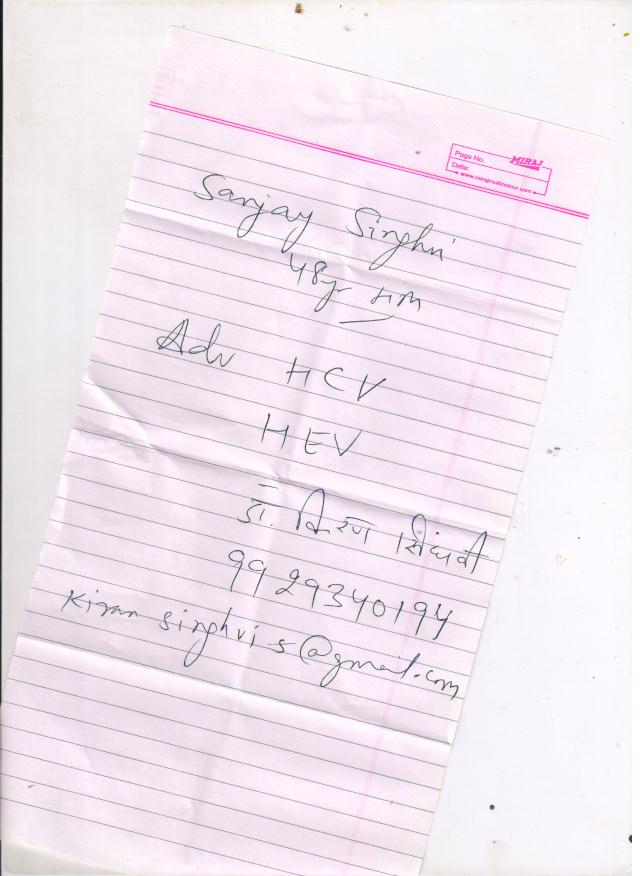 Page No.
MIRAJ
Date:
www.mirajmulticolour.com
Sanjay Singhvi
48yr HM
Adv HCV
HEV
डॉ. किरण सिंघवी
9929340194
kiran singhvi s@gmail.com